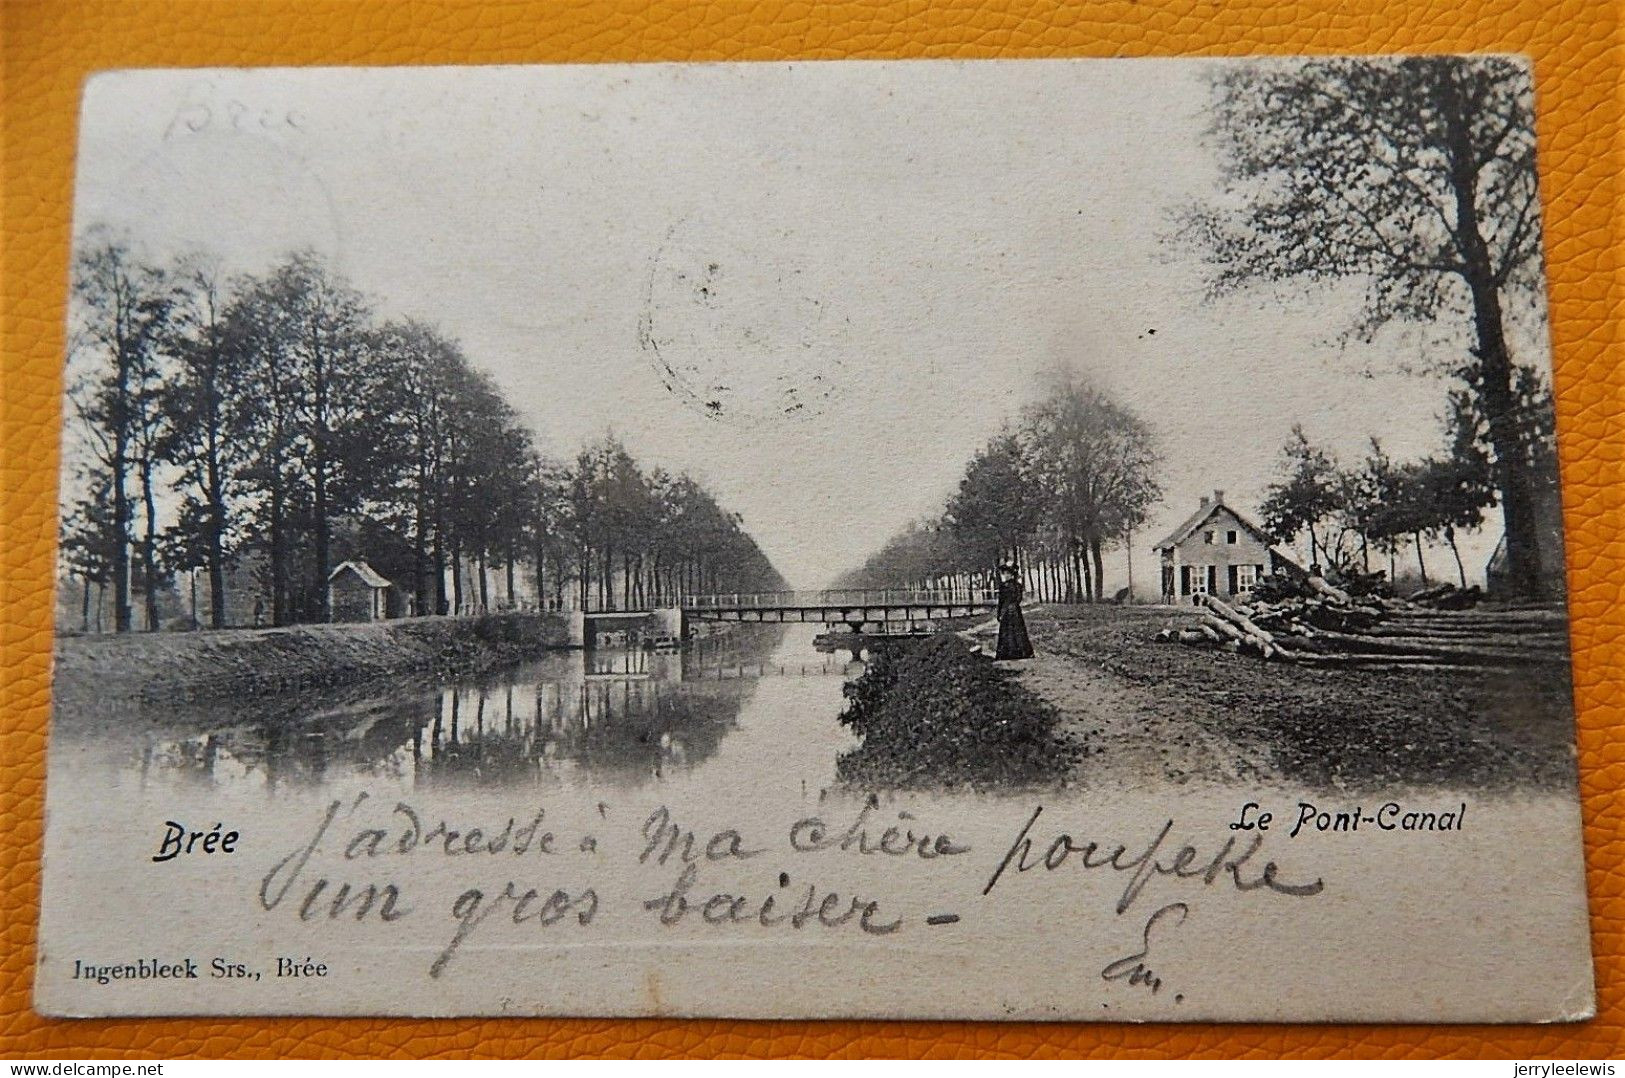 Brée
Le Pont-Canal
J'adresse à Ma chère poupeke
un gros baiser -
Em.
Ingenbleek Srs., Brée
© for Delcampe.net
jerryleelewis